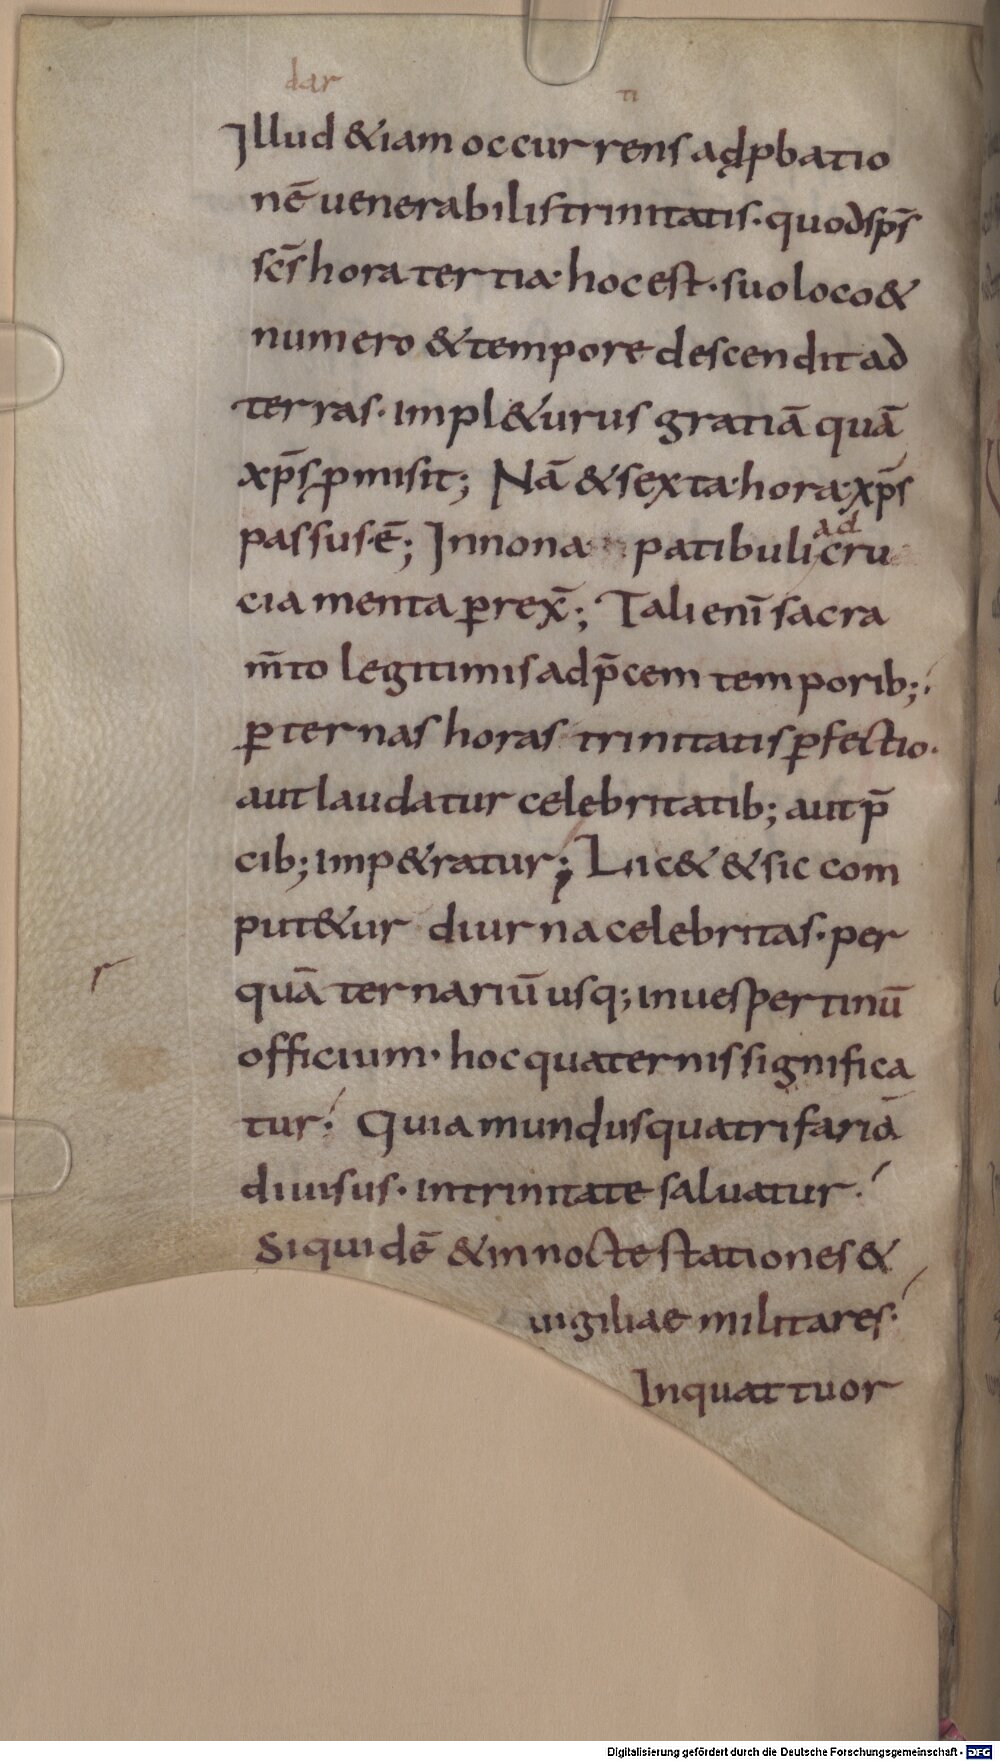 dar
ti
Illud &iam occurrens adpbatio
nē uenerabilis trinitatis · quod sp̄s
sc̄s hora tertia · hoc est · suo loco &
numero & tempore descendit ad
terras · impl&urus gratiā quā
xp̄s pmisit; Nā & sexta · hora · xp̄s
passus · ē; In nona patibuli ad cru
ciamenta ꝑrex̄; Tali enī sacra
m̄to legitimis ad p̄cem temporib;
ꝑ ternas horas trinitatis ꝑfectio ·
aut laudatur celebritatib; aut p̄
cib; imp&ratur; Lic& & sic com
put&ur diurna celebritas · per
quā ternariū usq; in uespertinū
r
officium · hoc quaternis significa
tur · Quia mundus quatrifariā
diuisus · in trinitate saluatur ·
Siquidē & in nocte stationes &
uigiliae militares ·
In quattuor
Digitalisierung gefördert durch die Deutsche Forschungsgemeinschaft - DFG